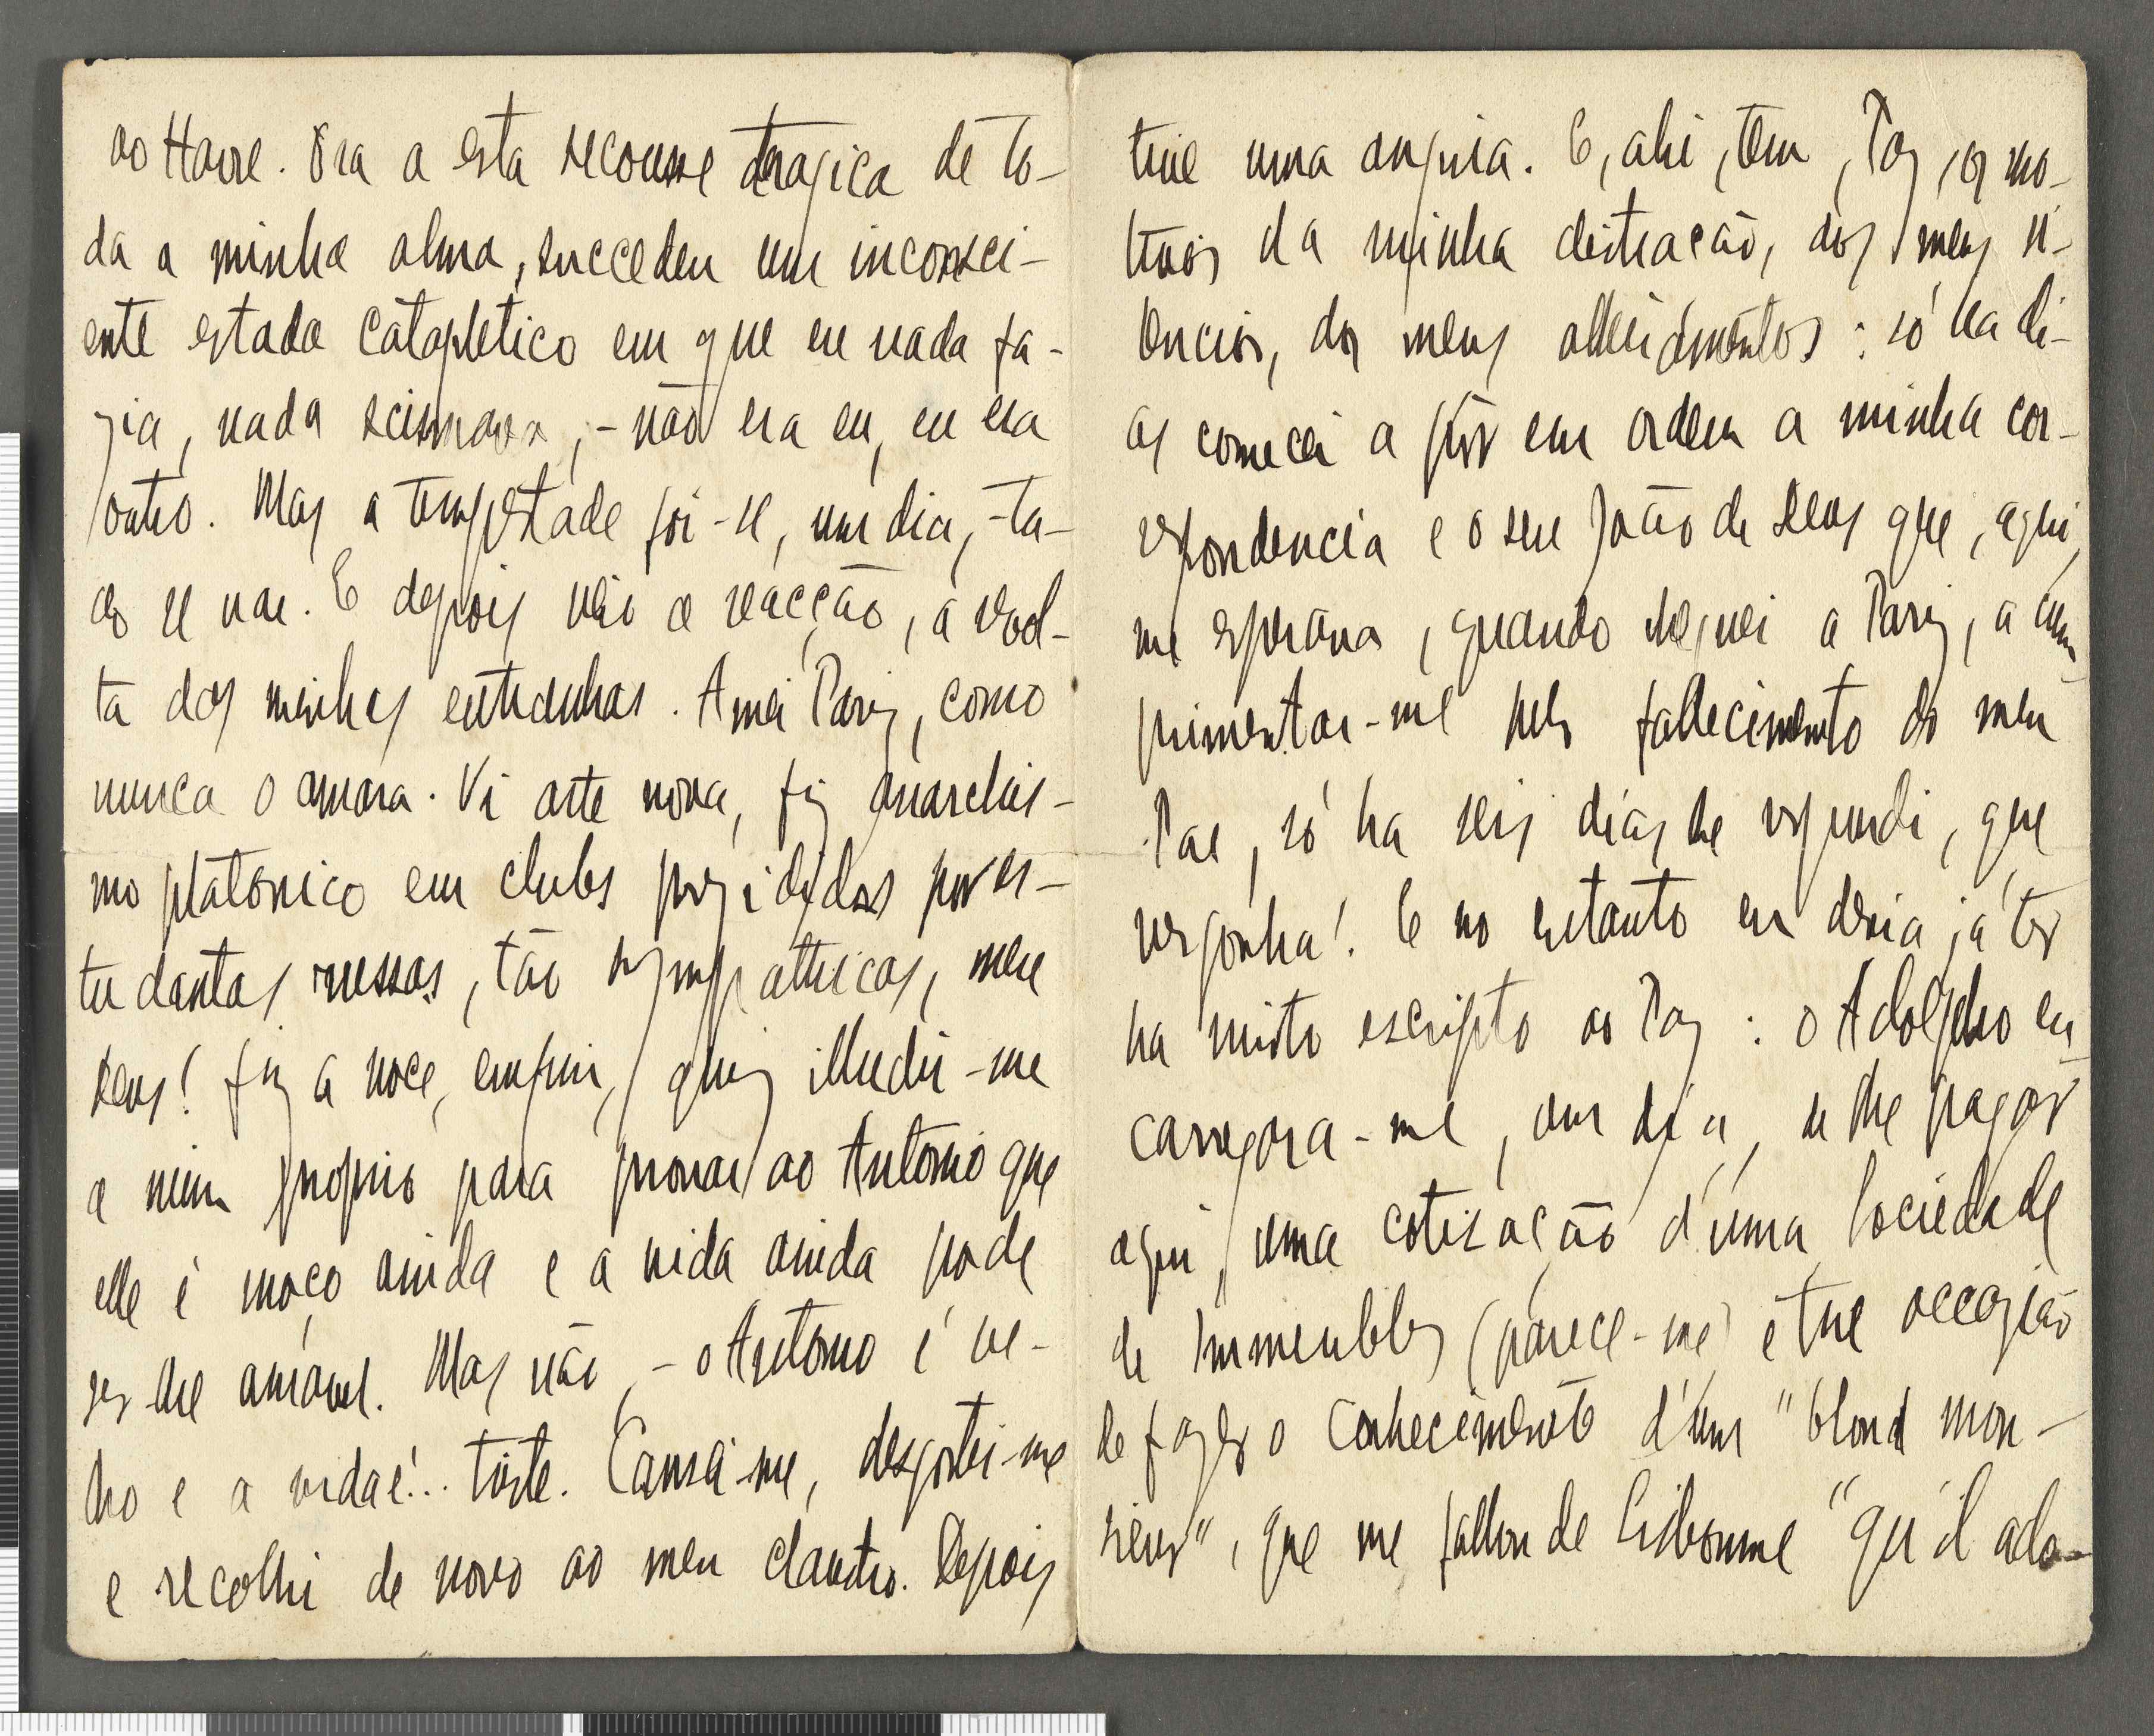 ao Havre. Ora a esta secousse tragica de to-
da a minha alma, succedeu um inconsci-
ente estado cataplético em que eu nada fa-
zia, nada scismava, - não era eu, eu era
outro. Mas a tempestade foi-se, um dia, - tu-
do se vae. E depois veio a reacção, a vol-
ta das minhas entranhas. Amei Pariz, como
nunca o amara. Vi arte nova, fiz anarchis-
mo platonico em clubs prezididos por es-
tudantas russas, tão sympathicas, meu
Deus! fiz a noce, emfim, quiz illudir-me
a mim proprio para provar ao Antonio que
elle é moço ainda e a vida ainda pode
ser-lhe amavel. Mas não, - o Antonio é ve-
lho e a vida é!.. triste. Cansei-me, desgostei-me
e recolhi de novo ao meu claustro. Depois
tive uma angina. E, ahi, tem, Paz, os mo-
tivos da minha distracção, dos meus si-
lencios, dos meus alheiamentos: só ha di-
as comecei a pôr em ordem a minha cor-
respondencia e o seu João de Deus que, aqui,
me esperava, quando cheguei a Pariz, a cum-
primentar-me pelo fallecimento do meu
Pae, só ha seis dias lhe respondi, que
vergonha! E no entanto eu devia já ter
ha muito escripto ao Paz: o Adolpho en-
carregara-me, um dia, de lhe pagar
aqui, uma cotisação d'uma Sociedade
de Immeubles (parece-me) e tive occazião
de fazer o conhecimento d'um "blond mon-
sieur", que me fallou de Lisbonne "qu'il ado-